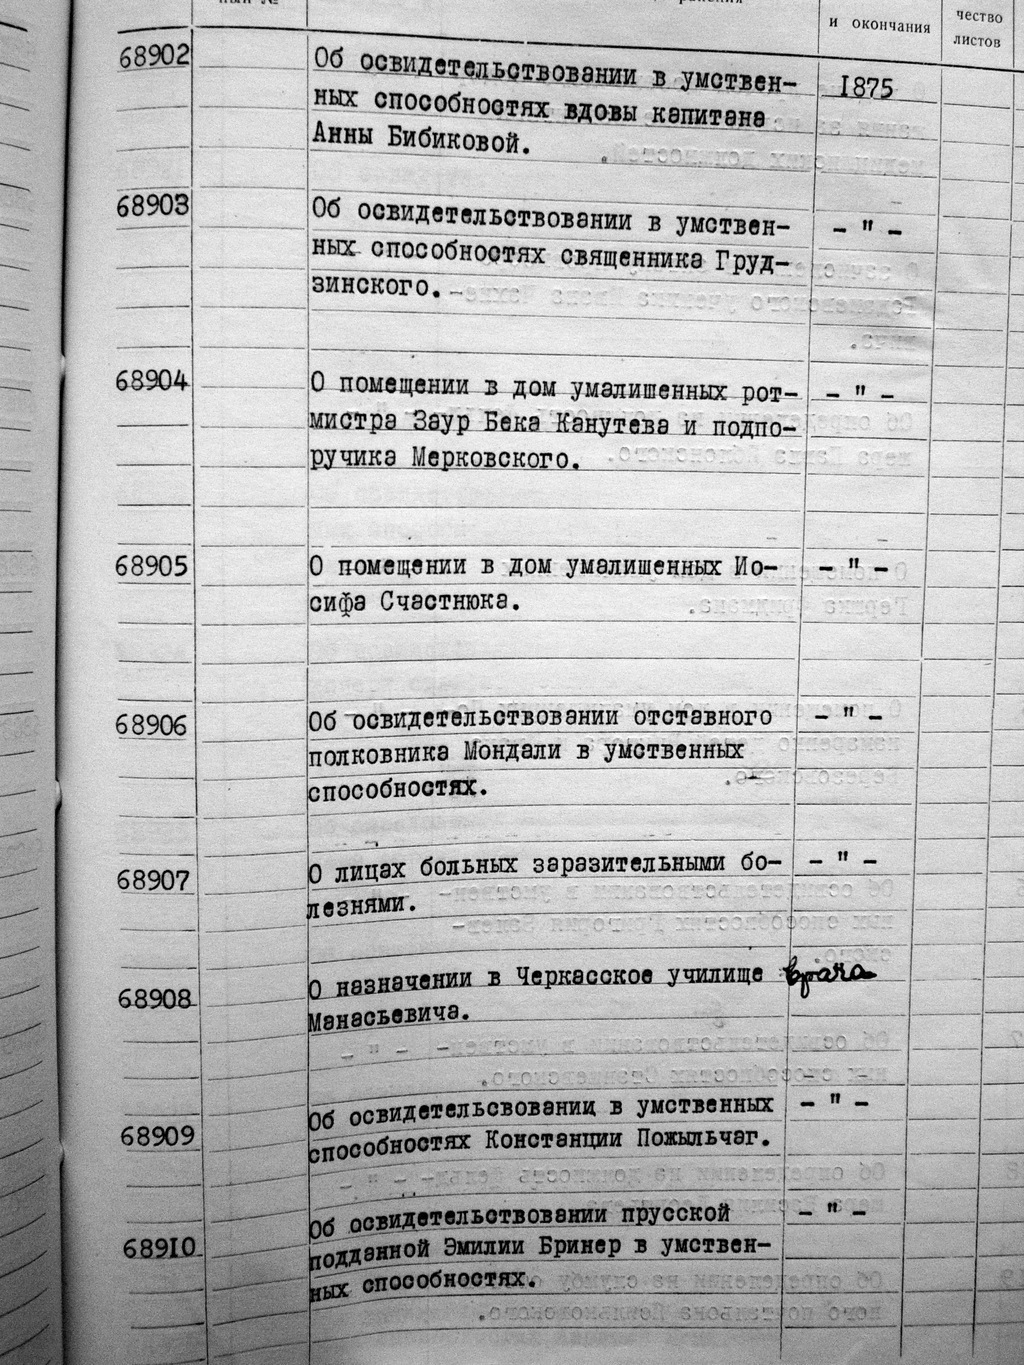 и окончания
чество
листов
68902
Об освидетельствовании в умствен-
1875
ных способностях вдовы капитана
Анны Бибиковой.
68903
Об освидетельствовании в умствен-
- " -
ных способностях священника Груд-
зинского.
68904
О помещении в дом умалишенных рот-
- " -
мистра Заур Бека Канутева и подпо-
ручика Мерковского.
68905
О помещении в дом умалишенных Ио-
- " -
сифа Счастнюка.
68906
Об освидетельствовании отставного
- " -
полковника Мондали в умственных
способностях.
68907
О лицах больных заразительными бо-
- " -
лезнями.
68908
О назначении в Черкасское училище врача
Манасьевича.
68909
Об освидетельсвовании в умственных
- " -
способностях Констанции Пожыльчаг.
68910
Об освидетельствовании прусской
- " -
подданной Эмилии Бринер в умствен-
ных способностях.